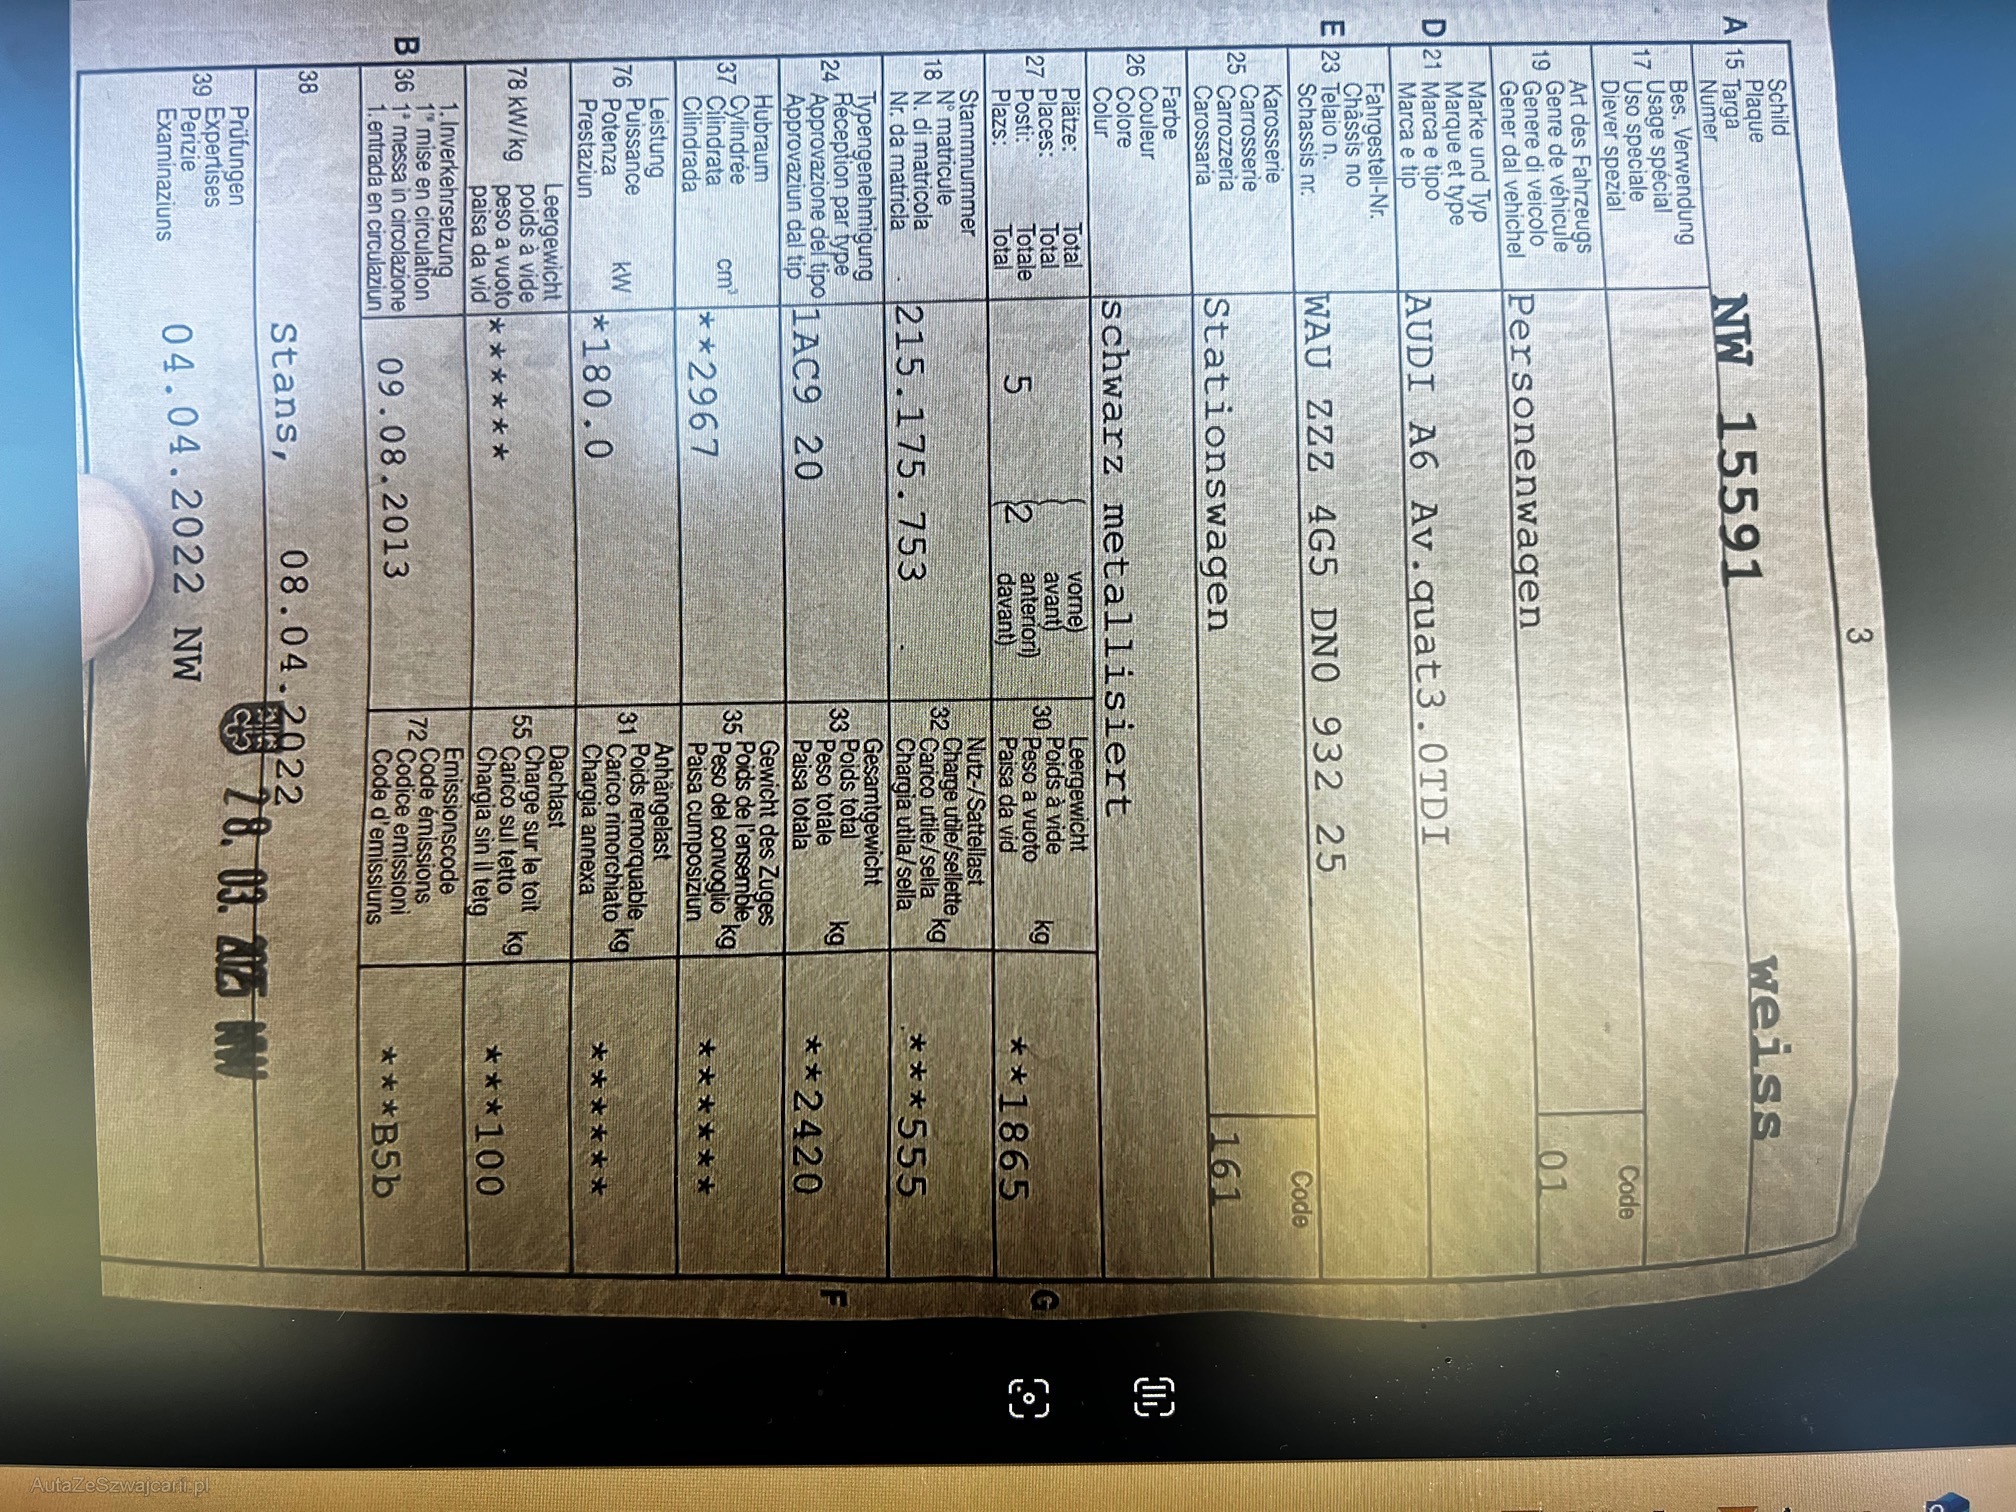 3
Schild
Plaque
A 15 Targa
Numer
NW 15591 weiss
Bes. Verwendung
Usage spécial
17 Uso speciale
Diever spezial
Code
Art des Fahrzeugs
Genre de véhicule
19 Genere di veicolo
Gener dal vehichel
Personenwagen 01
Marke und Typ
Marque et type
D 21 Marca e tipo
Marca e tip
AUDI A6 Av.quat3.0TDI
Fahrgestell-Nr.
Châssis no
E 23 Telaio n.
Schassis nr.
WAU ZZZ 4G5 DN0 932 25
Code
Karosserie
Carrosserie
25 Carrozzeria
Carossaria
Stationswagen 161
Farbe
Couleur
26 Colore
Colur
schwarz metallisiert
Plätze: Total vorne)
Places: Total avant)
27 Posti: Totale anteriori)
Plazs: Total davant)
5 (2
Leergewicht
Poids à vide
30 Peso a vuoto kg
Paisa da vid
**1865
G
Stammnummer
N° matricule
18 N. di matricola
Nr. da matricla
215.175.753
Nutz-/Sattellast
Charge utile/sellette
32 Carico utile/sella kg
Chargia utila/sella
***555
Typengenehmigung
Réception par type
24 Approvazione del tipo
Approvaziun dal tip
1AC9 20
Gesamtgewicht
Poids total
33 Peso totale kg
Paisa totala
**2420
F
Hubraum
Cylindrée
37 Cilindrata cm³
Cilindrada
**2967
Gewicht des Zuges
Poids de l'ensemble
35 Peso del convoglio kg
Paisa cumposiziun
******
Leistung
Puissance
76 Potenza kW
Prestaziun
*180.0
Anhängelast
Poids remorquable
31 Carico rimorchiato kg
Chargia annexa
******
Leergewicht
poids à vide
78 kW/kg peso a vuoto
paisa da vid
******
Dachlast
Charge sur le toit
55 Carico sul tetto kg
Chargia sin il tetg
***100
1. Inverkehrsetzung
1re mise en circulation
B 36 1a messa in circolazione
1. entrada en circulaziun
09.08.2013
Emissionscode
Code émissions
72 Codice emissioni
Code d'emissiuns
***B5b
38
Stans, 08.04.2022
Prüfungen
Expertises
39 Perizie
Examinaziuns
04.04.2022 NW
28. 03. 2025 NW
AutaZeSzwajcarii.pl